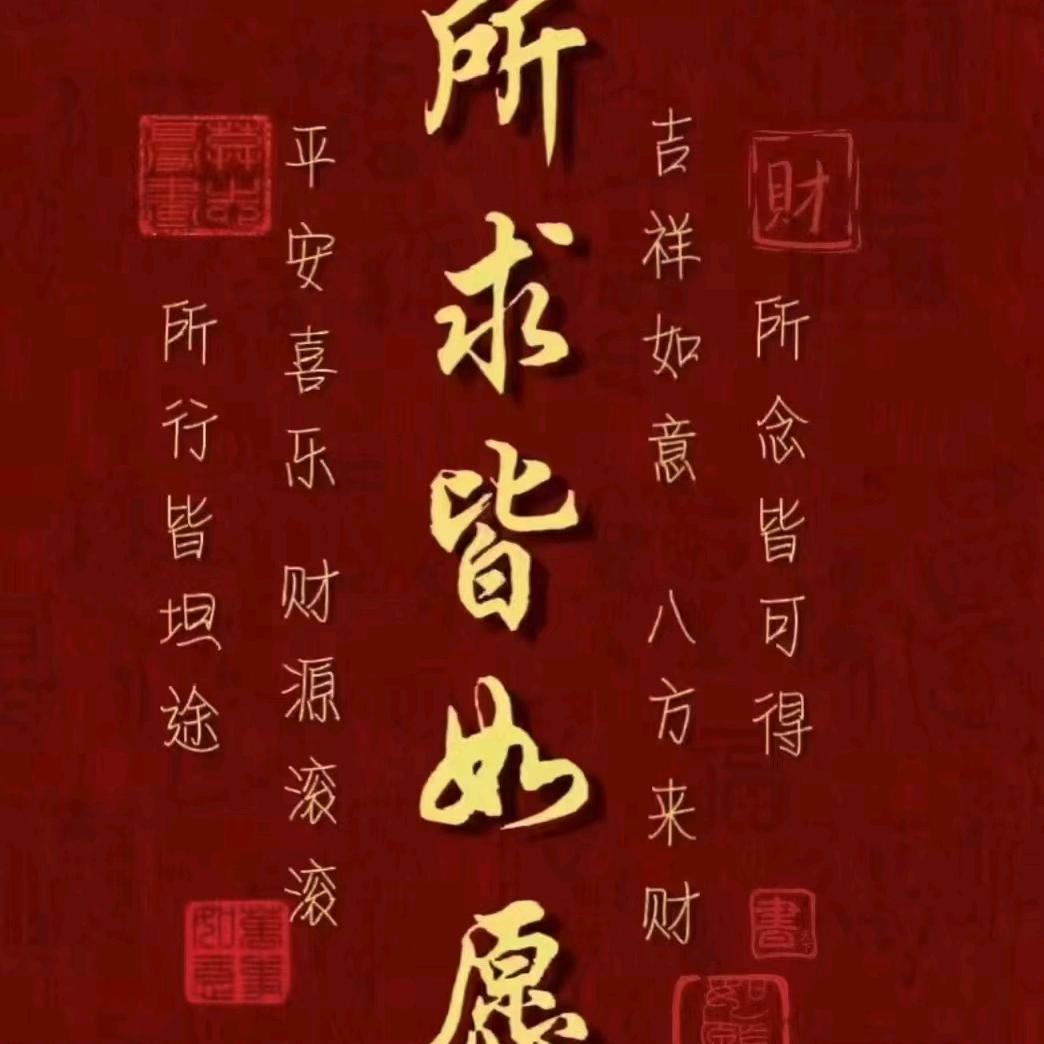 財
所念皆可得
吉祥如意 八方来财
所求皆如愿
平安喜乐 财源滚滚
所行皆坦途
書